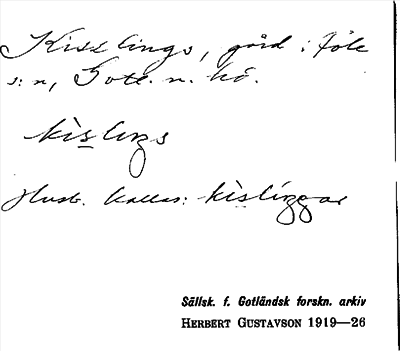 Kisslings, gård i Fole
s:n, Gotl. n. hd.
kislings
Husb. kallas: kislinggar
Sällsk. f. Gotländsk forskn. arkiv
HERBERT GUSTAVSON 1919—26